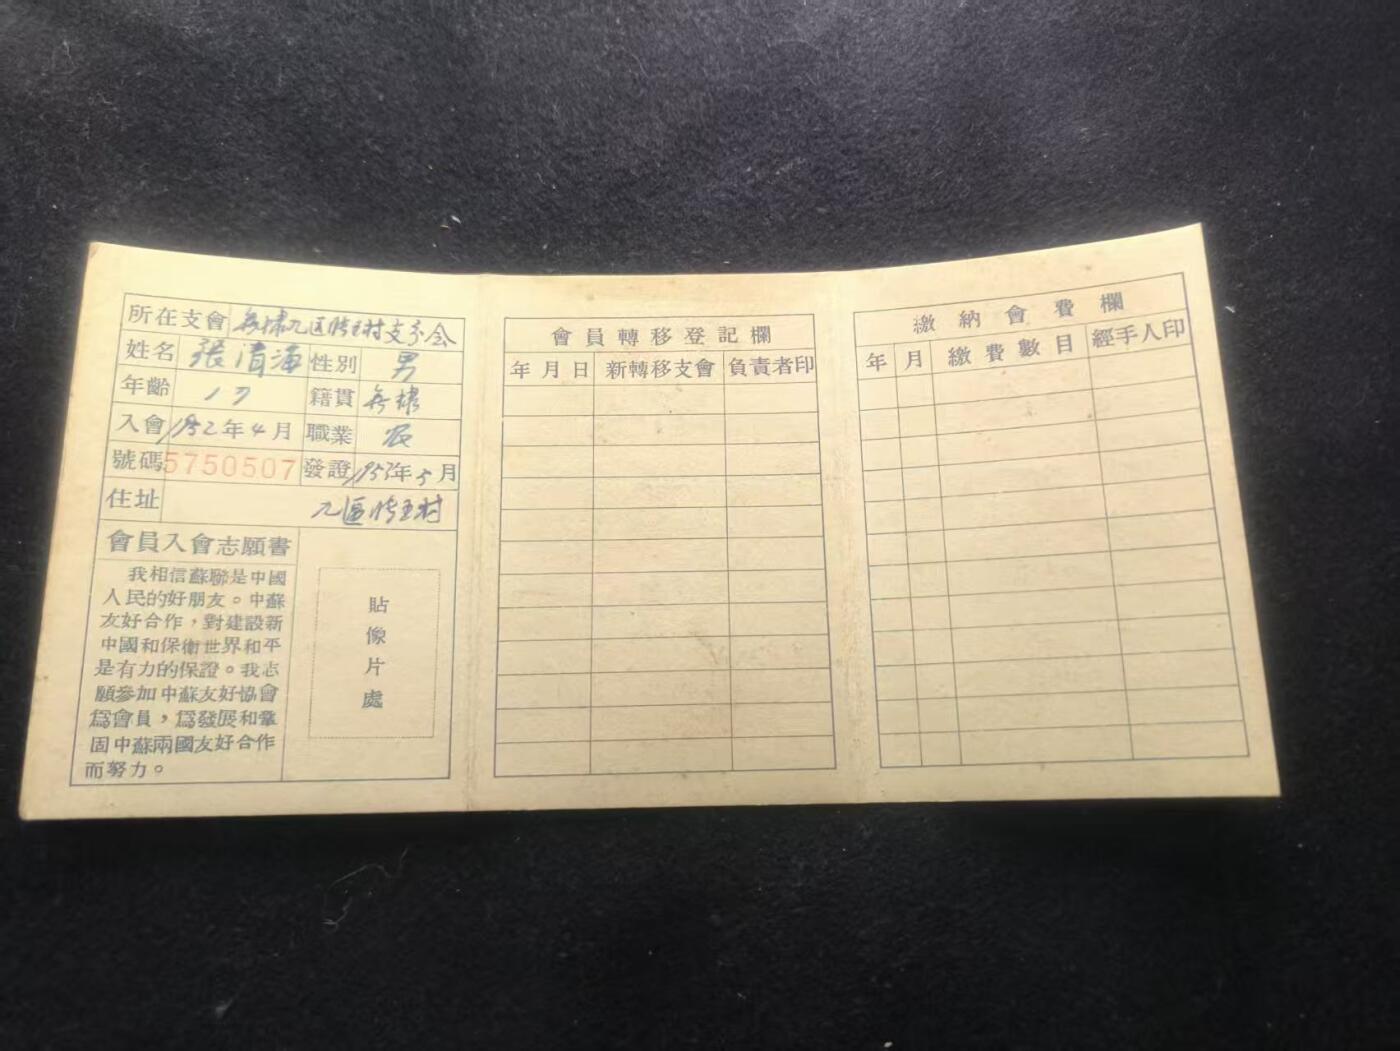 所在支會 無棣九区 村支分会
姓名 張清海 性別 男
年齡 籍貫 無棣
入會 1952年4月 職業 农
號碼 5750507 發證 年5月
住址 九區 村
會員入會志願書
我相信蘇聯是中國
人民的好朋友。中蘇
友好合作，對建設新
中國和保衛世界和平
是有力的保證。我志
願參加中蘇友好協會
爲會員，爲發展和鞏
固中蘇兩國友好合作
而努力。
貼
像
片
處
會員轉移登記欄
年月日 新轉移支會 負責者印
繳納會費欄
年 月 繳費數目 經手人印